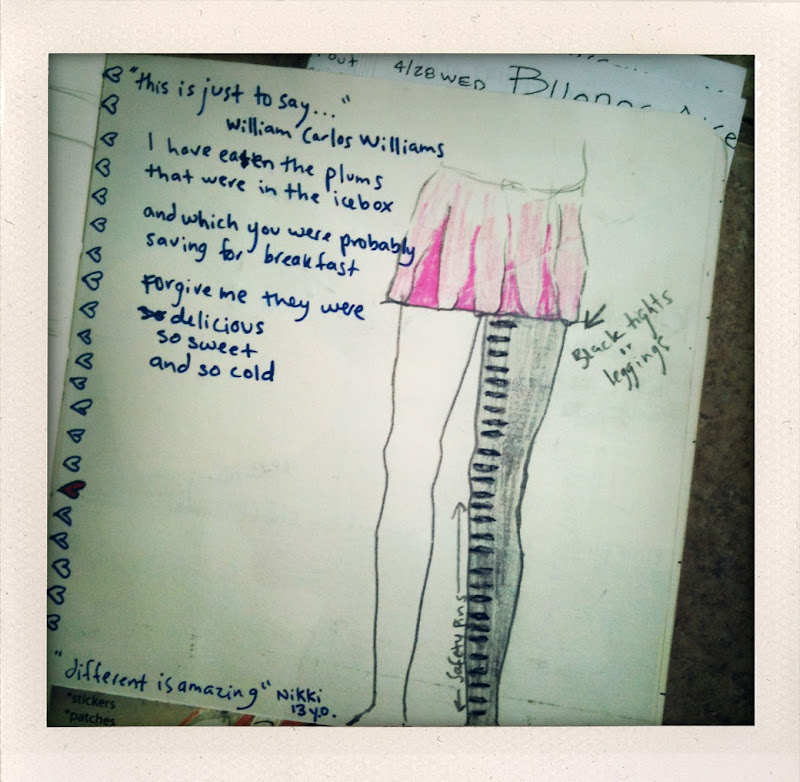 out 4/28 WED
"this is just to say..."
William Carlos Williams
I have eaten the plums
that were in the icebox
and which you were probably
saving for breakfast
Forgive me they were
so delicious
so sweet
and so cold
Black tights
or
leggings
Safety Pins
"different is amazing" Nikki
13 y.o.
*stickers
*patches